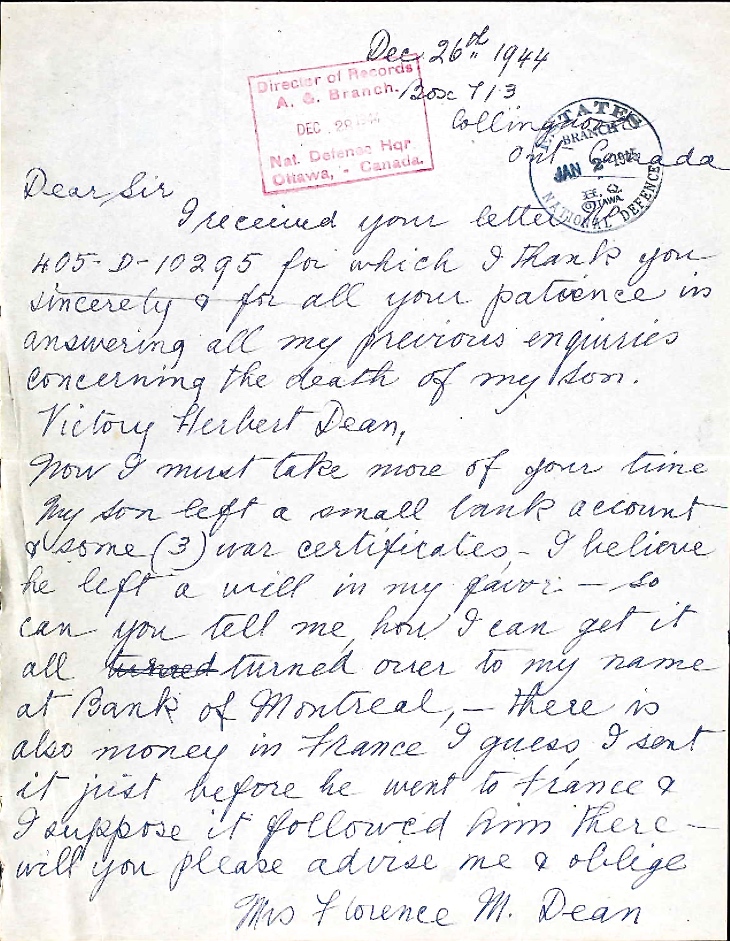 Dec 26th 1944
Director of Records
A. G. Branch.
Box 713
DEC 29 1944
Collingwood
Nat. Defence Hqr
Ottawa, - Canada.
ESTATES
BRANCH
Ont Canada
JAN 2 - 1945
H. Q.
OTTAWA
NATIONAL DEFENCE
Dear Sir
I received your letter
405-D-10295 for which I thank you
sincerely & for all your patience in
answering all my previous enquiries
concerning the death of my son.
Victory Herbert Dean,
Now I must take more of your time
My son left a small bank account
& some (3) war certificates - I believe
he left a will in my favor - so
can you tell me, how I can get it
all turned turned over to my name
at Bank of Montreal, - there is
also money in France I guess, I sent
it just before he went to France &
I suppose it followed him there -
will you please advise me & oblige
Mrs Florence M. Dean